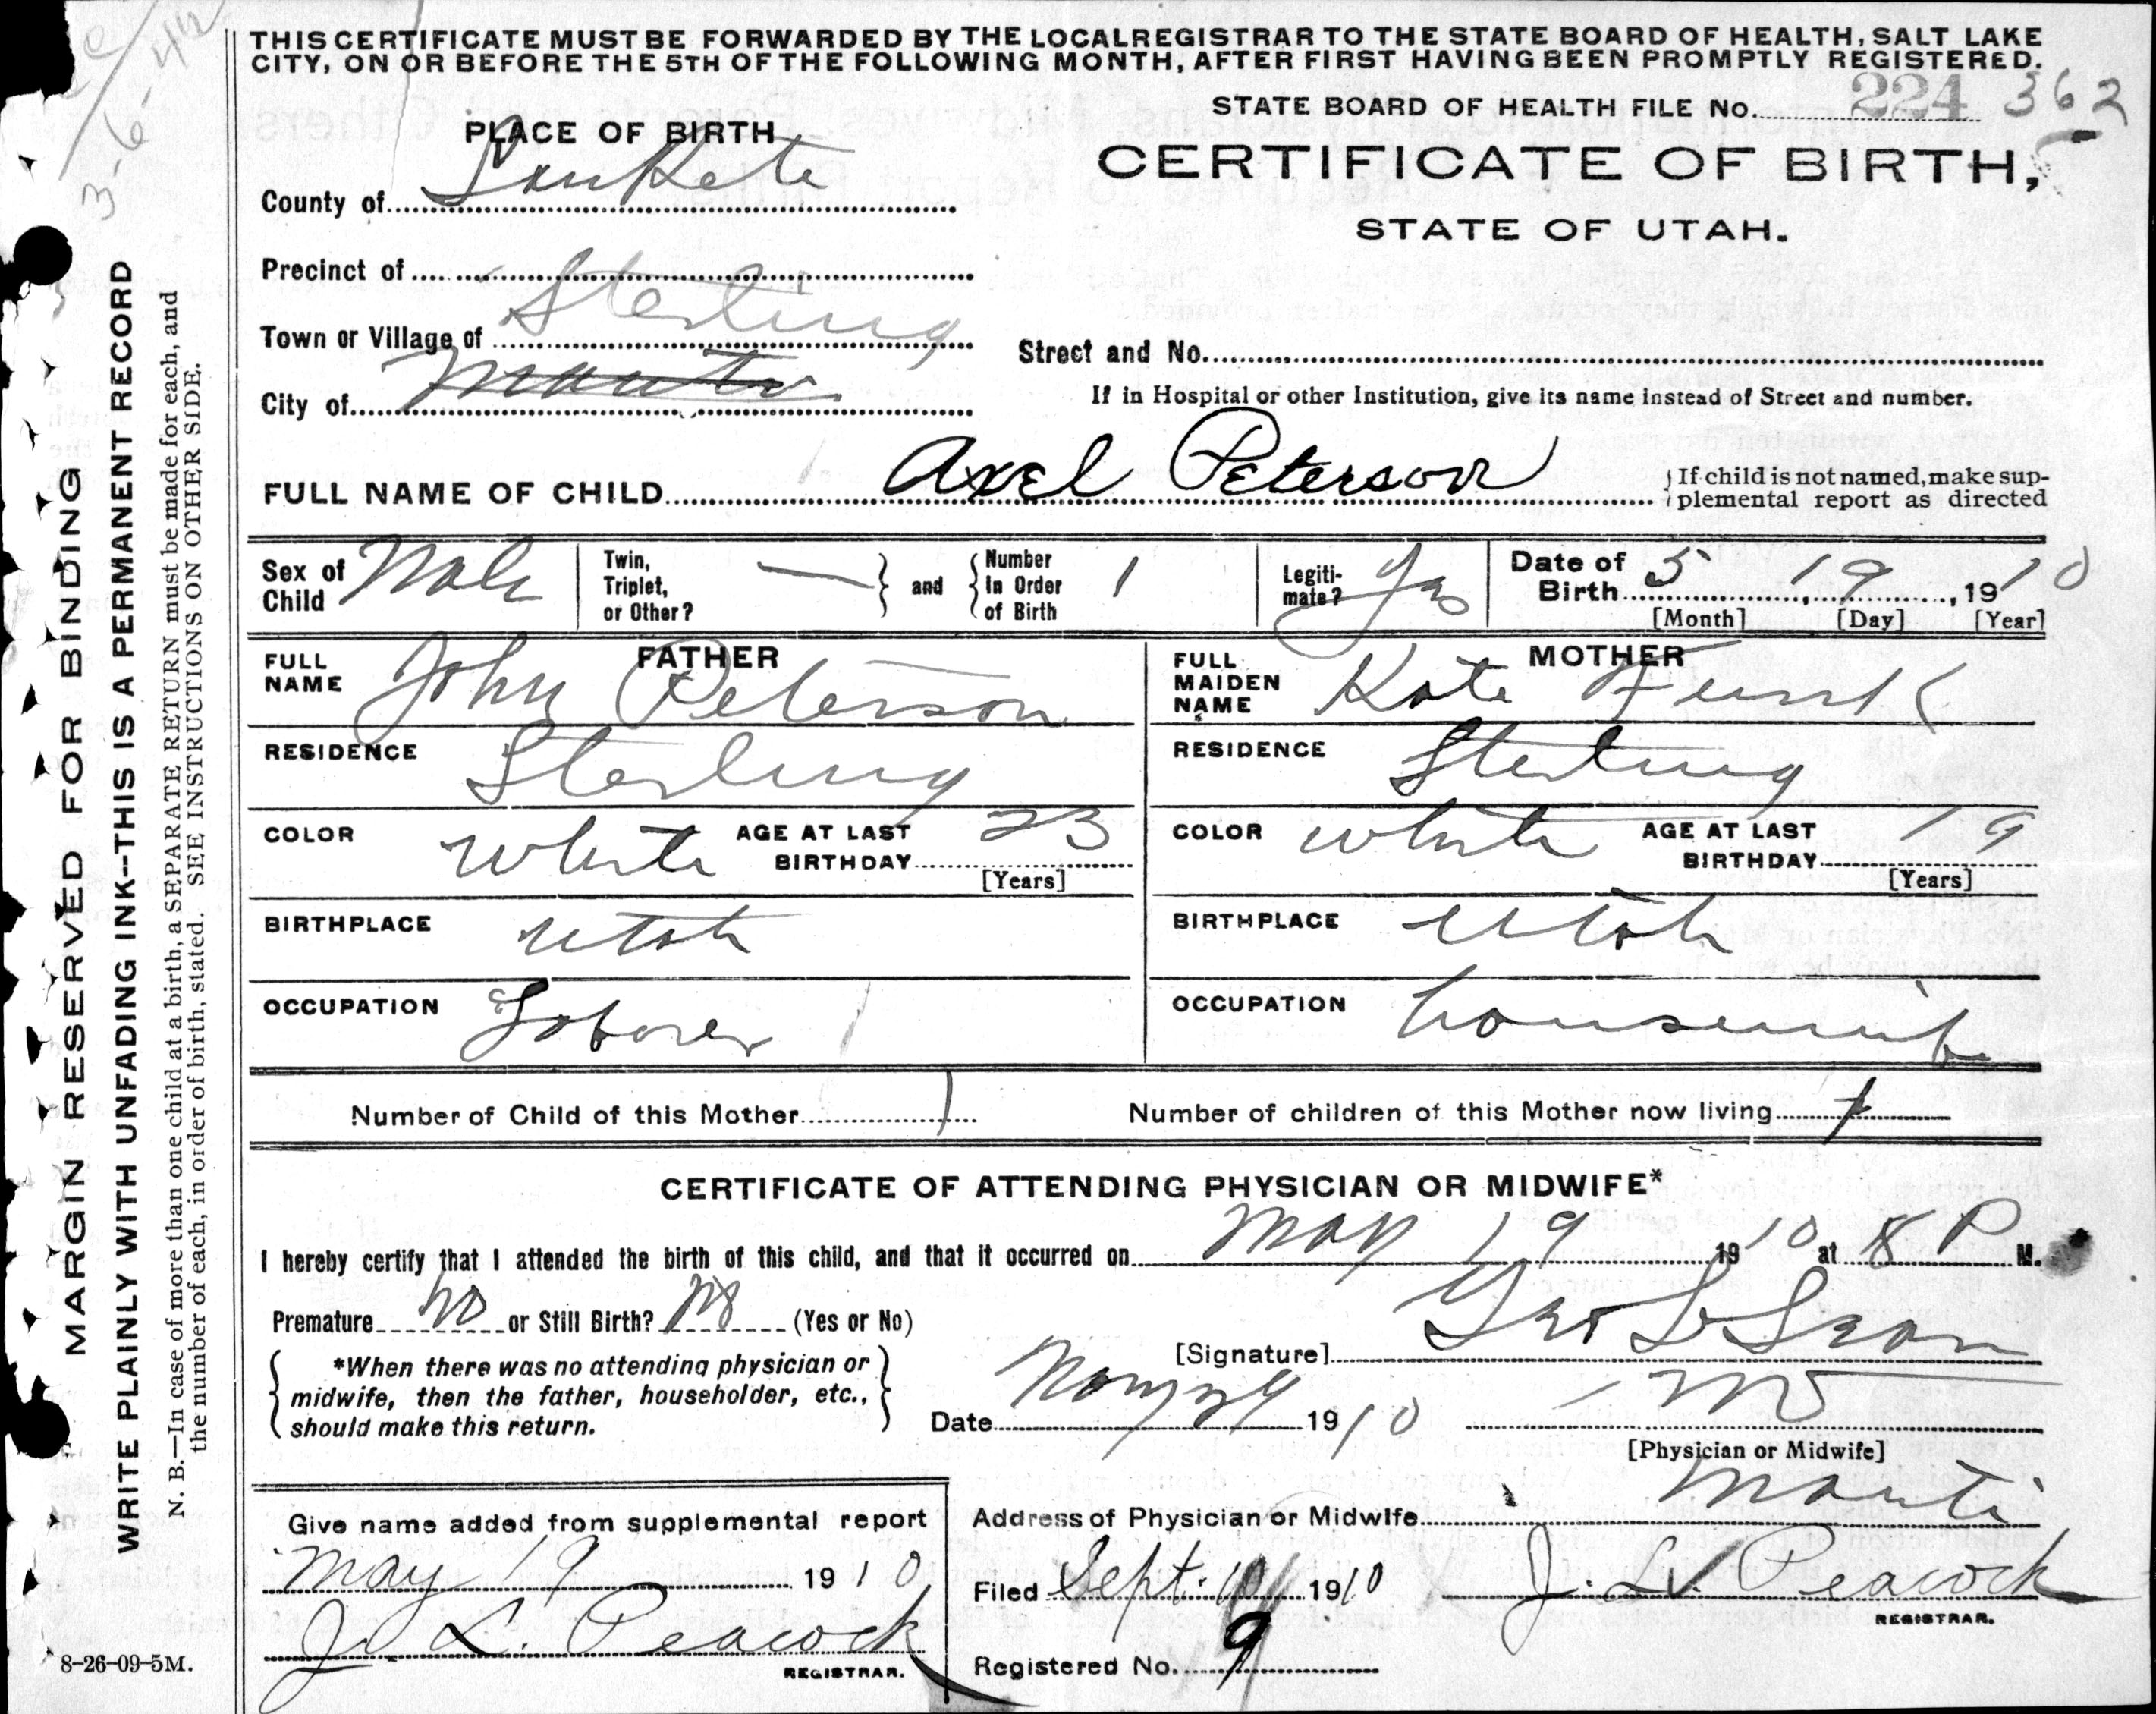 THIS CERTIFICATE MUST BE FORWARDED BY THE LOCAL REGISTRAR TO THE STATE BOARD OF HEALTH, SALT LAKE
CITY, ON OR BEFORE THE 5TH OF THE FOLLOWING MONTH, AFTER FIRST HAVING BEEN PROMPTLY REGISTERED.
3-6-42
STATE BOARD OF HEALTH FILE No. 224 362
PLACE OF BIRTH
CERTIFICATE OF BIRTH,
STATE OF UTAH.
County of SanPete
Precinct of
Town or Village of Sterling
City of Manti
Street and No.
If in Hospital or other Institution, give its name instead of Street and number.
FULL NAME OF CHILD Axel Peterson
If child is not named, make sup-
plemental report as directed
Sex of Child Male
Twin, Triplet, or Other? — and Number In Order of Birth 1
Legiti-mate? Yes
Date of Birth 5, 19, 1910
[Month] [Day] [Year]
FATHER
FULL NAME John Peterson
RESIDENCE Sterling
COLOR White AGE AT LAST BIRTHDAY 23
[Years]
BIRTHPLACE Utah
OCCUPATION Laborer
MOTHER
FULL MAIDEN NAME Kate Funk
RESIDENCE Sterling
COLOR White AGE AT LAST BIRTHDAY 19
[Years]
BIRTHPLACE Utah
OCCUPATION housewife
Number of Child of this Mother 1
Number of children of this Mother now living 1
CERTIFICATE OF ATTENDING PHYSICIAN OR MIDWIFE*
I hereby certify that I attended the birth of this child, and that it occurred on May 19 1910 at 8 P M.
Premature No or Still Birth? No (Yes or No)
*When there was no attending physician or
midwife, then the father, householder, etc.,
should make this return.
[Signature] Geo L
Date May 1910
MD
[Physician or Midwife]
Address of Physician or Midwife Manti
Give name added from supplemental report
May 19 1910
J. L. Peacock
REGISTRAR.
Filed Sept. 10 1910 J. L. Peacock
REGISTRAR.
Registered No. 9
8-26-09-5M.
MARGIN RESERVED FOR BINDING
WRITE PLAINLY WITH UNFADING INK--THIS IS A PERMANENT RECORD
N. B.—In case of more than one child at a birth, a SEPARATE RETURN must be made for each, and
the number of each, in order of birth, stated. SEE INSTRUCTIONS ON OTHER SIDE.